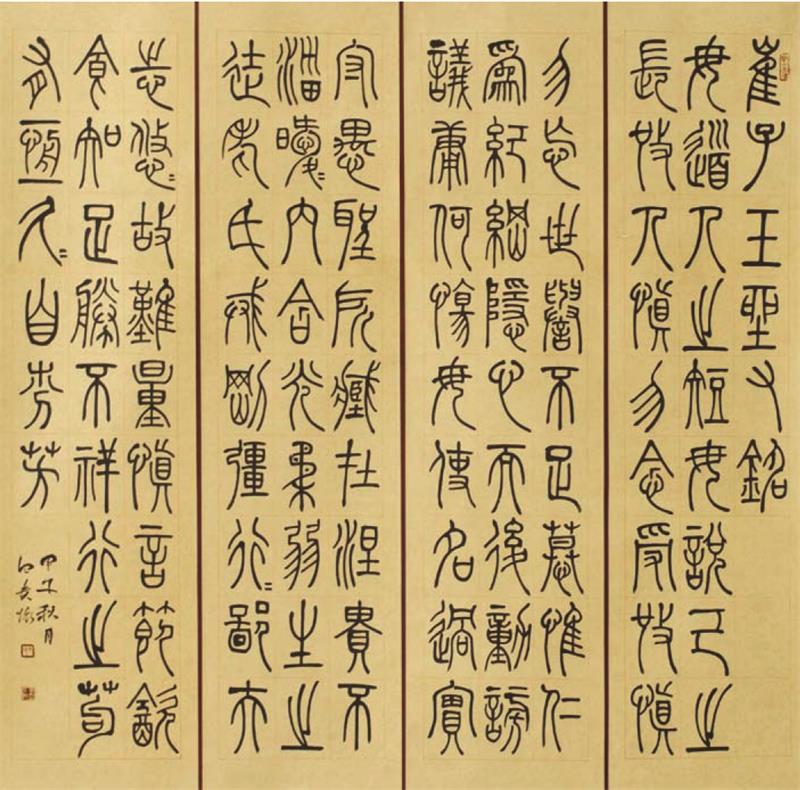 崔子玉坐又銘
毋道人之短毋說己之
長施人慎勿念受施慎
勿忘世譽不足慕惟仁
為紀綱隱心而後動謗
議庸何傷毋使名過實
守愚聖所臧在涅貴不
淄曖〻內含光柔弱生之
徒老氏誡剛彊行〻鄙夫
志悠〻故難量慎言節飲
食知足勝不祥行之苟
有恆久〻自芬芳
甲午秋月